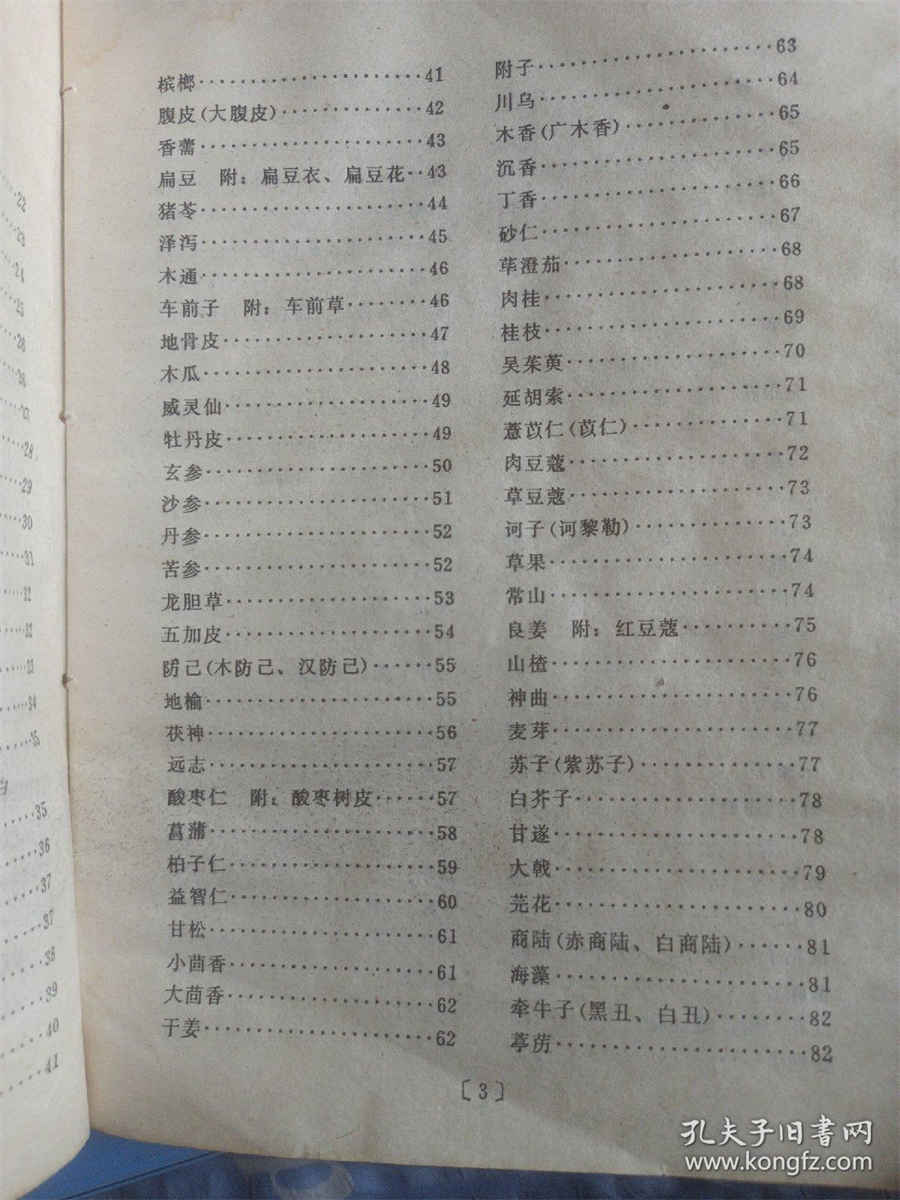 22
23
24
25
26
28
29
30
31
32
32
33
34
35
35
36
37
37
38
39
40
41
槟榔……………………41
腹皮(大腹皮)……………42
香薷……………………43
扁豆 附：扁豆衣、扁豆花··43
猪苓……………………44
泽泻……………………45
木通……………………46
车前子 附：车前草………46
地骨皮…………………47
木瓜……………………48
威灵仙…………………49
牡丹皮…………………49
玄参……………………50
沙参……………………51
丹参……………………52
苦参……………………52
龙胆草…………………53
五加皮…………………54
防己(木防己、汉防己)……55
地榆……………………55
茯神……………………56
远志……………………57
酸枣仁 附：酸枣树皮……57
菖蒲……………………58
柏子仁…………………59
益智仁…………………60
甘松……………………61
小茴香…………………61
大茴香…………………62
干姜……………………62
附子……………………63
川乌……………………64
木香(广木香)……………65
沉香……………………65
丁香……………………66
砂仁……………………67
荜澄茄…………………68
肉桂……………………68
桂枝……………………69
吴茱萸…………………70
延胡索…………………71
薏苡仁(苡仁)……………71
肉豆蔻…………………72
草豆蔻…………………73
诃子(诃黎勒)……………73
草果……………………74
常山……………………74
良姜 附：红豆蔻…………75
山楂……………………76
神曲……………………76
麦芽……………………77
苏子(紫苏子)……………77
白芥子…………………78
甘遂……………………78
大戟……………………79
芫花……………………80
商陆(赤商陆、白商陆)……81
海藻……………………81
牵牛子(黑丑、白丑)………82
葶苈……………………82
〔3〕
孔夫子旧书网
www.kongfz.com